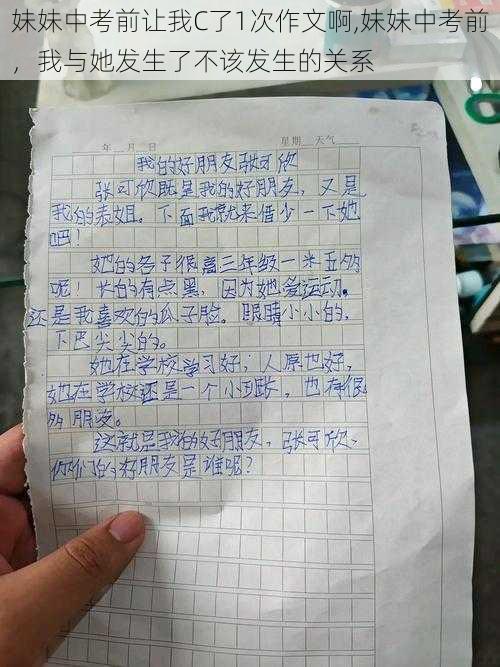 妹妹中考前让我C了1次作文啊,妹妹中考前
，我与她发生了不该发生的关系
年 月 日 星期 天气
我的好朋友张可欣
张可欣既是我的好朋友，又是
我的表姐。下面我就来借少一下她
吧！
她的各子很高三年级一米五多
呢！长的有点黑，因为她爱运动。
还是我喜欢的瓜子脸。眼睛小小的，
下巴尖尖的。
她在学校学习好；人原也好，
她在学校还是一个小班长，也有很
多朋友。
这就是我的好朋友，张可欣、
你们的好朋友是谁呢？